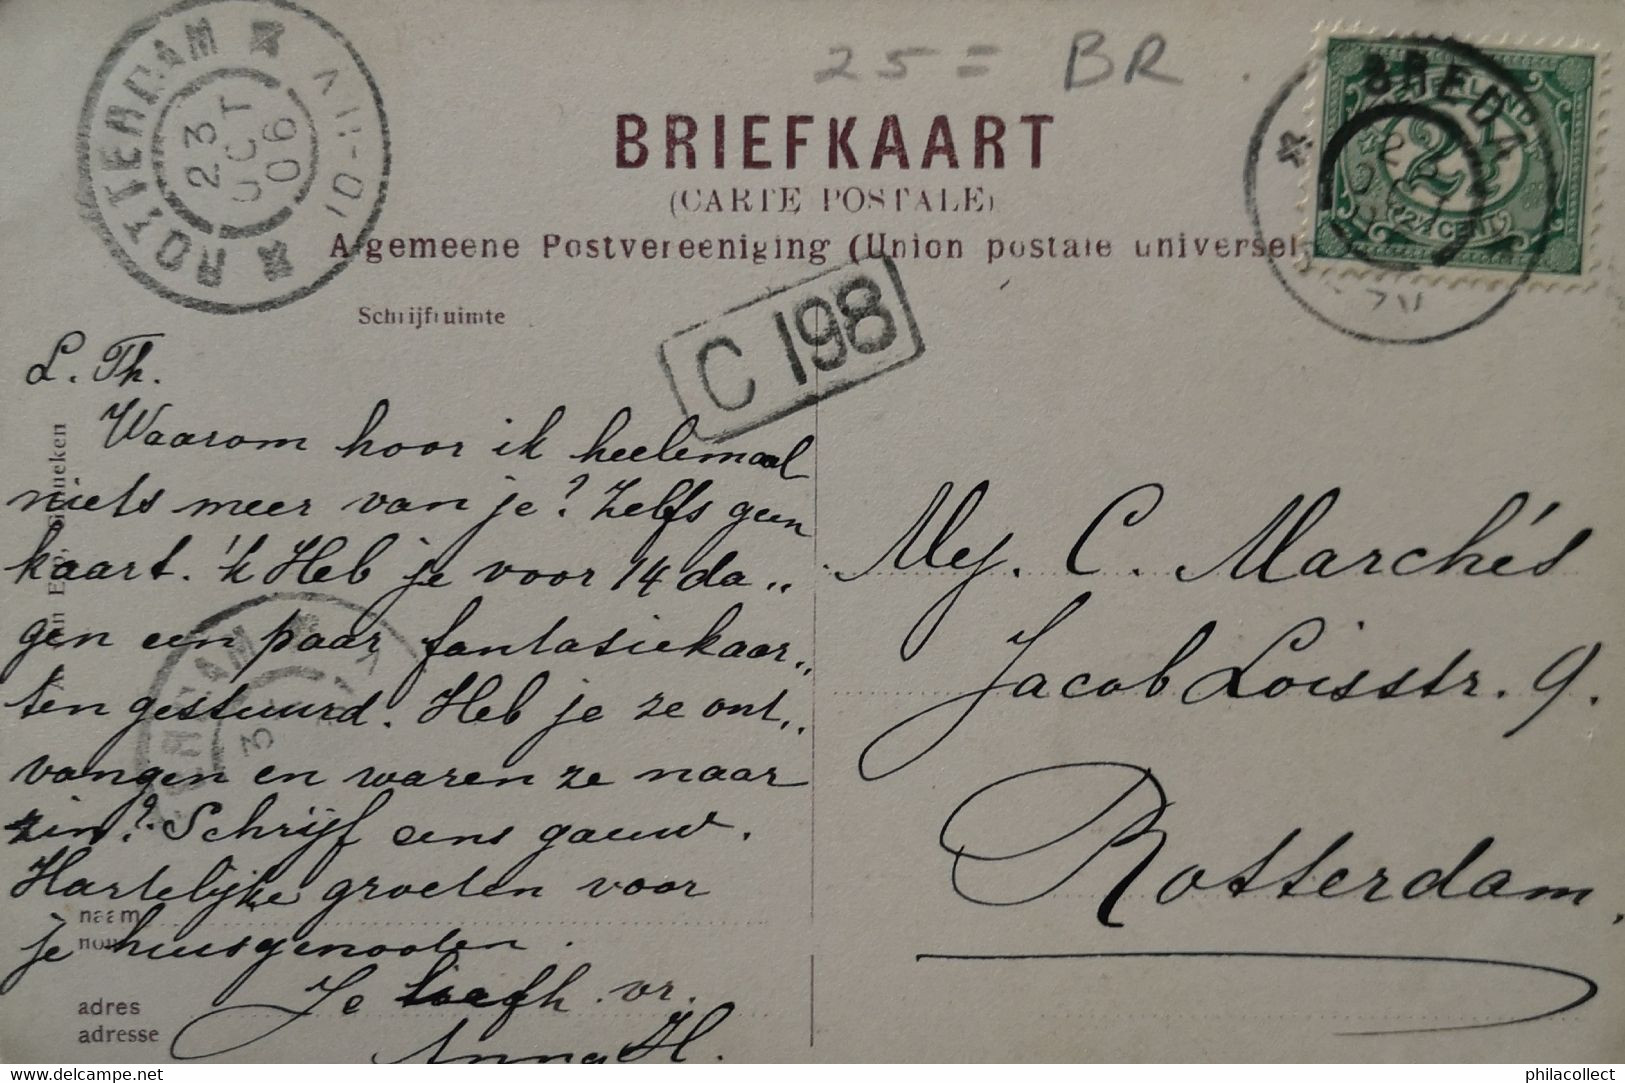 25 = BR
ROTTERDAM
23 OCT 06
BREDA
NEDERLAND
2½
2½ CENT
BRIEFKAART
(CARTE POSTALE)
Algemeene Postvereeniging (Union postale universel
Schrijfruimte
C 198
L. Th.
Waarom hoor ik heelemaal
niets meer van je? Zelfs geen
kaart. 'k Heb je voor 14 da„
gen een paar fantasiekaar„
ten gestuurd. Heb je ze ont„
vangen en waren ze naar
zin? Schrijf eens gauw.
Hartelijke groeten voor
je huisgenooten.
Je liefh. vr.
Anna H.
Mej. C. Marchés
Jacob Loisstr. 9.
Rotterdam.
naam
nom
adres
adresse
delcampe.net
philacollect